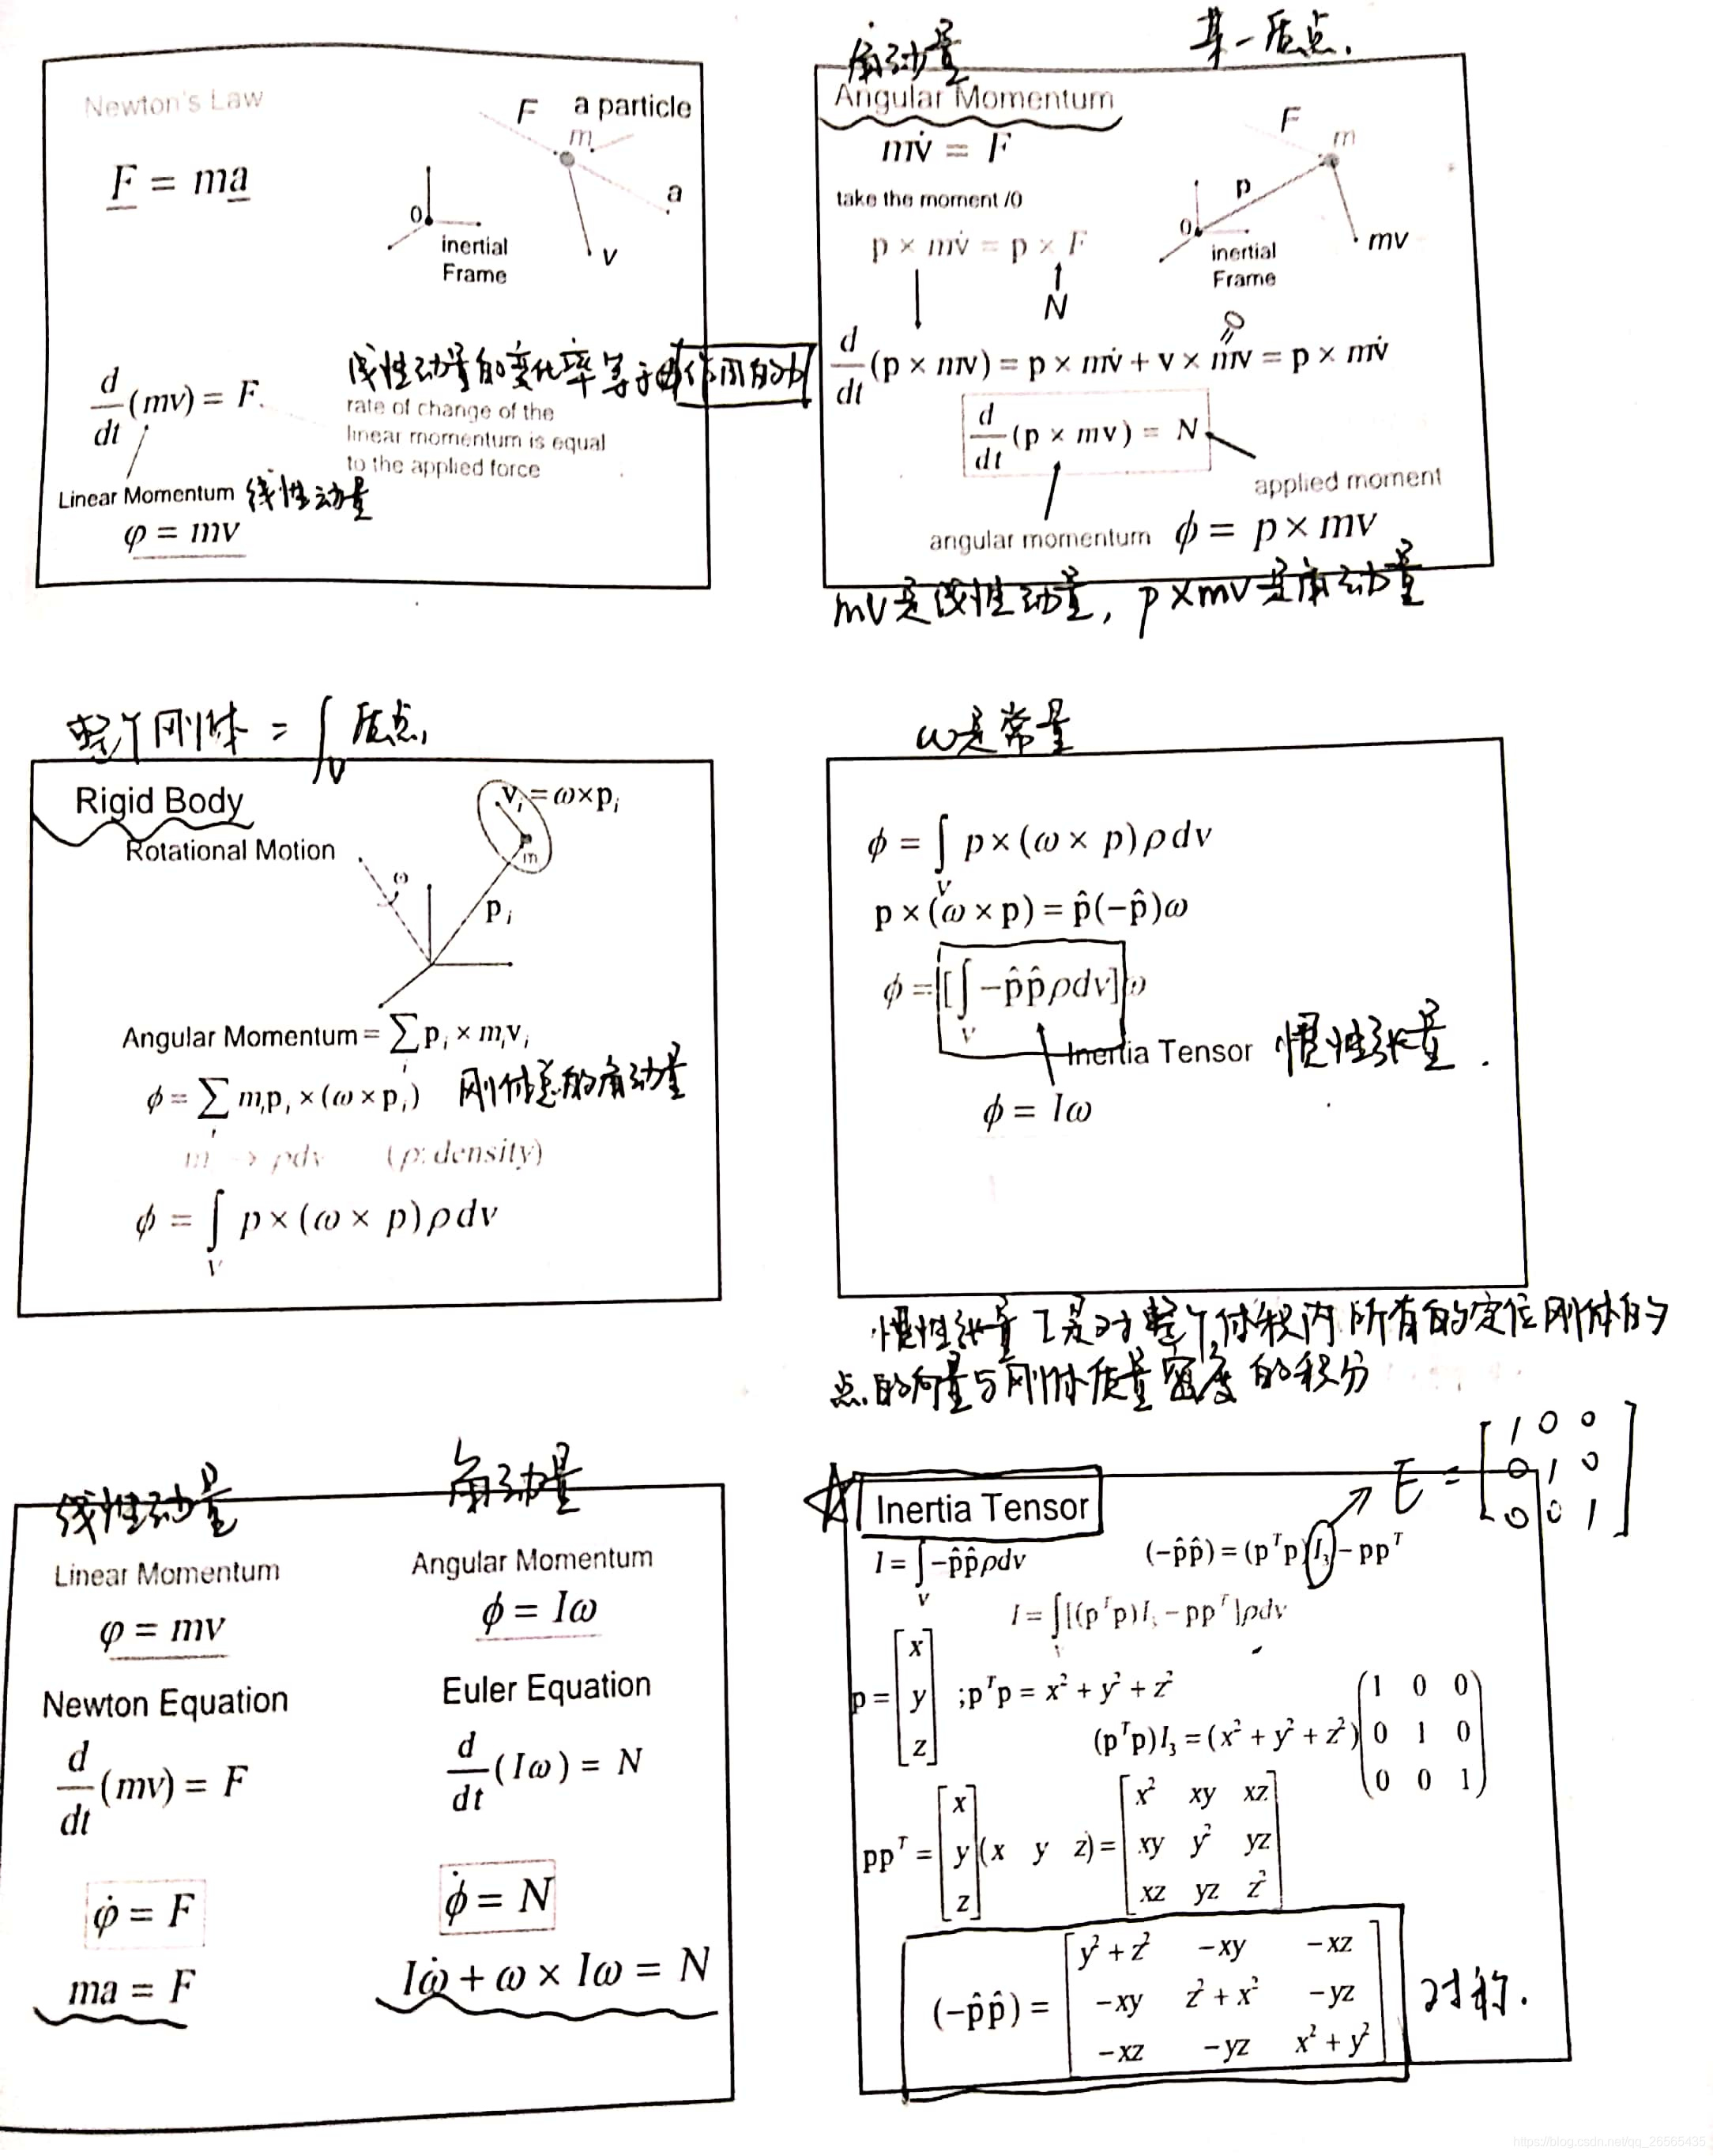 Newton's Law
F = ma
F a particle
m
a
0
inertial
Frame
v
d/dt (mv) = F
线性动量的变化率等于由作用的力
rate of change of the
linear momentum is equal
to the applied force
Linear Momentum 线性动量
φ = mv
角动量
某一质点.
Angular Momentum
mv̇ = F
take the moment /0
p × mv̇ = p × F
N
F
m
p
0
inertial
Frame
mv
0
d/dt (p × mv) = p × mv̇ + v × mv = p × mv̇
d/dt (p × mv) = N
applied moment
angular momentum ϕ = p × mv
mv是线性动量, p×mv是角动量
整个刚体 = ∫v 质点,
Rigid Body
Rotational Motion
vᵢ = ω×pᵢ
m
ω
pᵢ
Angular Momentum = ∑ᵢ pᵢ × mᵢvᵢ
ϕ = ∑ᵢ mᵢpᵢ × (ω × pᵢ) 刚体总的角动量
mᵢ → ρdv (ρ: density)
ϕ = ∫V p × (ω × p) ρ dv
ω是常量
ϕ = ∫V p × (ω × p) ρ dv
p × (ω × p) = p̂(−p̂)ω
ϕ = [∫V −p̂p̂ρdv] ω
Inertia Tensor 惯性张量.
ϕ = Iω
惯性张量I是对整个体积内所有的定位刚体的
点的向量与刚体质量密度的积分
线性动量
角动量
Linear Momentum
φ = mv
Newton Equation
d/dt (mv) = F
φ̇ = F
ma = F
Angular Momentum
ϕ = Iω
Euler Equation
d/dt (Iω) = N
ϕ̇ = N
Iω̇ + ω × Iω = N
☆ Inertia Tensor
E = [1 0 0
0 1 0
0 0 1]
I = ∫V −p̂p̂ρdv
(−p̂p̂) = (pᵀp)I₃ − ppᵀ
I = ∫V [(pᵀp)I₃ − ppᵀ]ρdv
p = [x y z] ; pᵀp = x² + y² + z²
(pᵀp)I₃ = (x² + y² + z²) (1 0 0
0 1 0
0 0 1)
ppᵀ = [x y z] (x y z) = [x² xy xz
xy y² yz
xz yz z²]
(−p̂p̂) = [y² + z² −xy −xz
−xy z² + x² −yz
−xz −yz x² + y²]
对称.
https://blog.csdn.net/qq_26565435